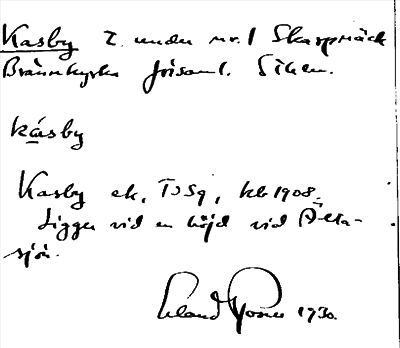 Kasby t. under nr. 1 Skarpnäck
Brännkyrka församl. Sthlm.
kásby
Kasby ek, TJSq, kb 1908.
Ligger vid en höjd vid Älta-
sjön.
Erland Rosell 1930.